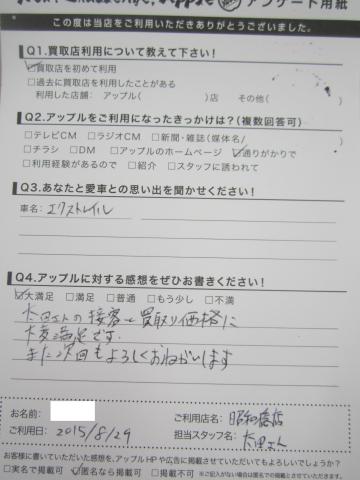 アンケート用紙
この度は当店をご利用いただきありがとうございました。
Q1.買取店利用について教えて下さい!
☑買取店を初めて利用
□過去に買取店を利用したことがある
利用した店舗: アップル( )店 その他( )
Q2.アップルをご利用になったきっかけは?(複数回答可)
□テレビCM □ラジオCM □新聞・雑誌(媒体名/ )
□チラシ □DM □アップルのホームページ ☑通りがかりで
□利用経験があるので □紹介 □スタッフに誘われて
Q3.あなたと愛車との思い出を聞かせください!
車名: エクストレイル
Q4.アップルに対する感想をぜひお書きください!
☑大満足 □満足 □普通 □もう少し □不満
太田さんの接客と買取り価格に
大変満足です。
また次回もよろしくおねがいします
お名前:
ご利用店名: 昭和橋店
ご利用日: 2015/8/29 担当スタッフ名: 太田さん
お客様に書いていただいた感想を、アップルHPや広告に掲載させていただいてもよろしいでしょうか?
□実名で掲載可 ☑匿名なら掲載可 □掲載不可 ※ご記入がない場合は匿名での掲載とさせていただきます。